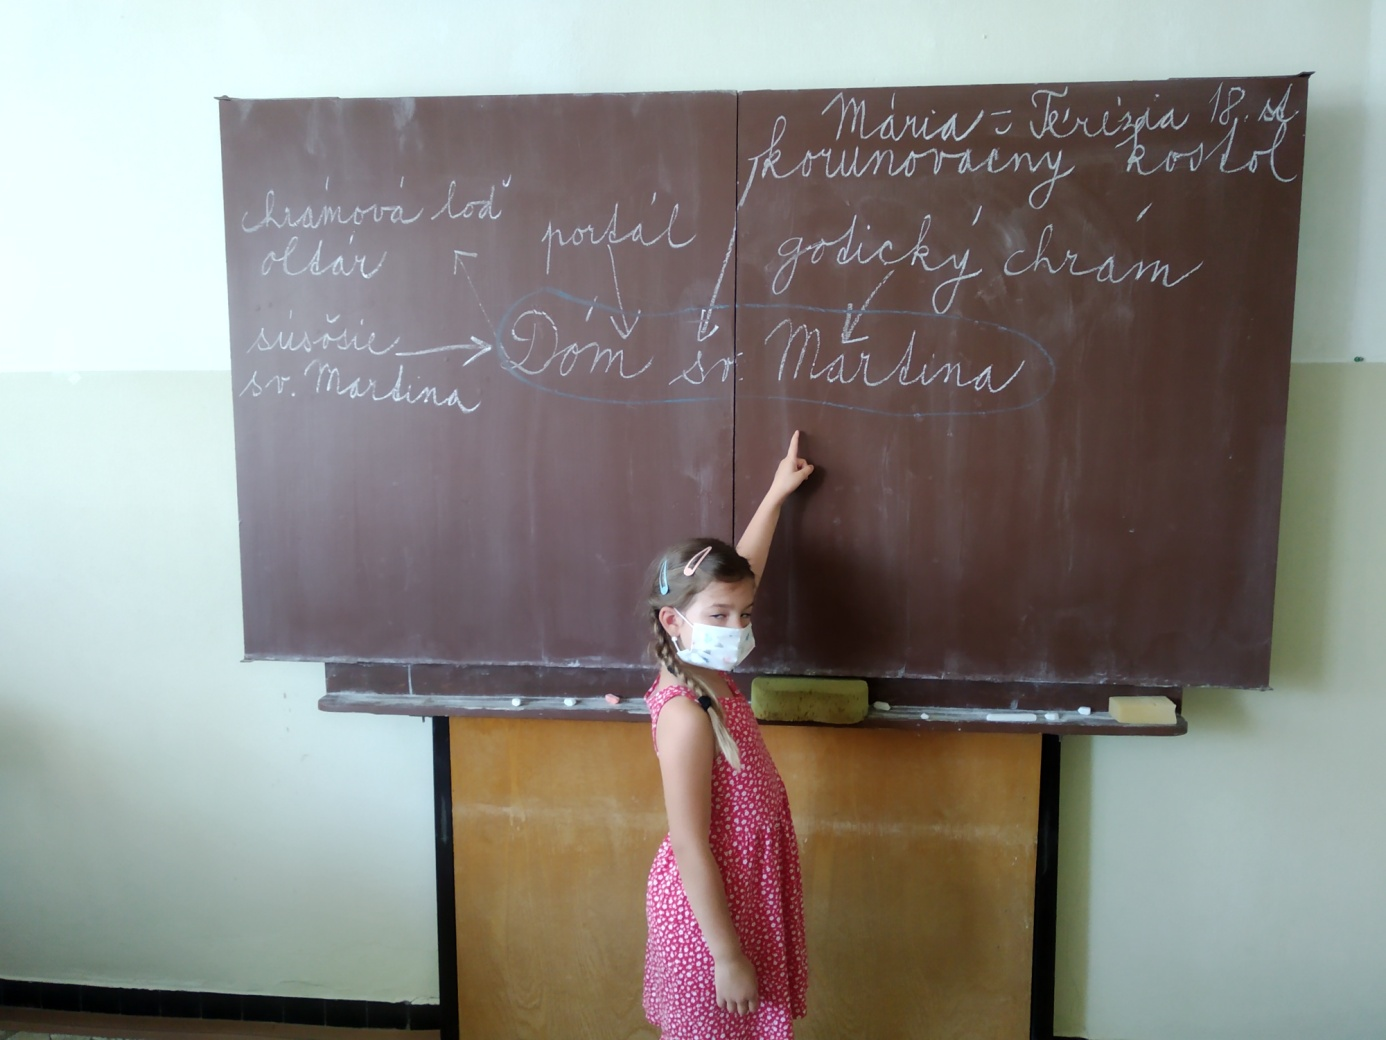 Mária - Terézia 18. st.
korunovačný kostol
chrámová loď
oltár
portál
gotický chrám
súsošie
sv. Martina
Dóm sv. Martina